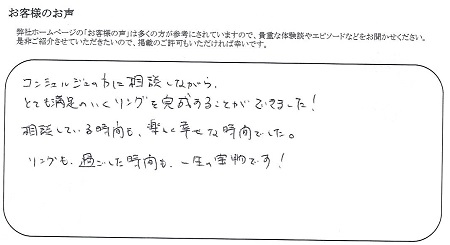 お客様のお声
弊社ホームページの「お客様の声」は多くの方が参考にされていますので、貴重な体験談やエピソードなどをお聞かせください。
是非ご紹介させていただきたいので、掲載のご許可もいただければ幸いです。
コンシェルジュの方に相談しながら、
とても満足のいくリングを完成することができました!
相談している時間も、楽しく幸せな時間でした。
リングも、過ごした時間も、一生の宝物です!